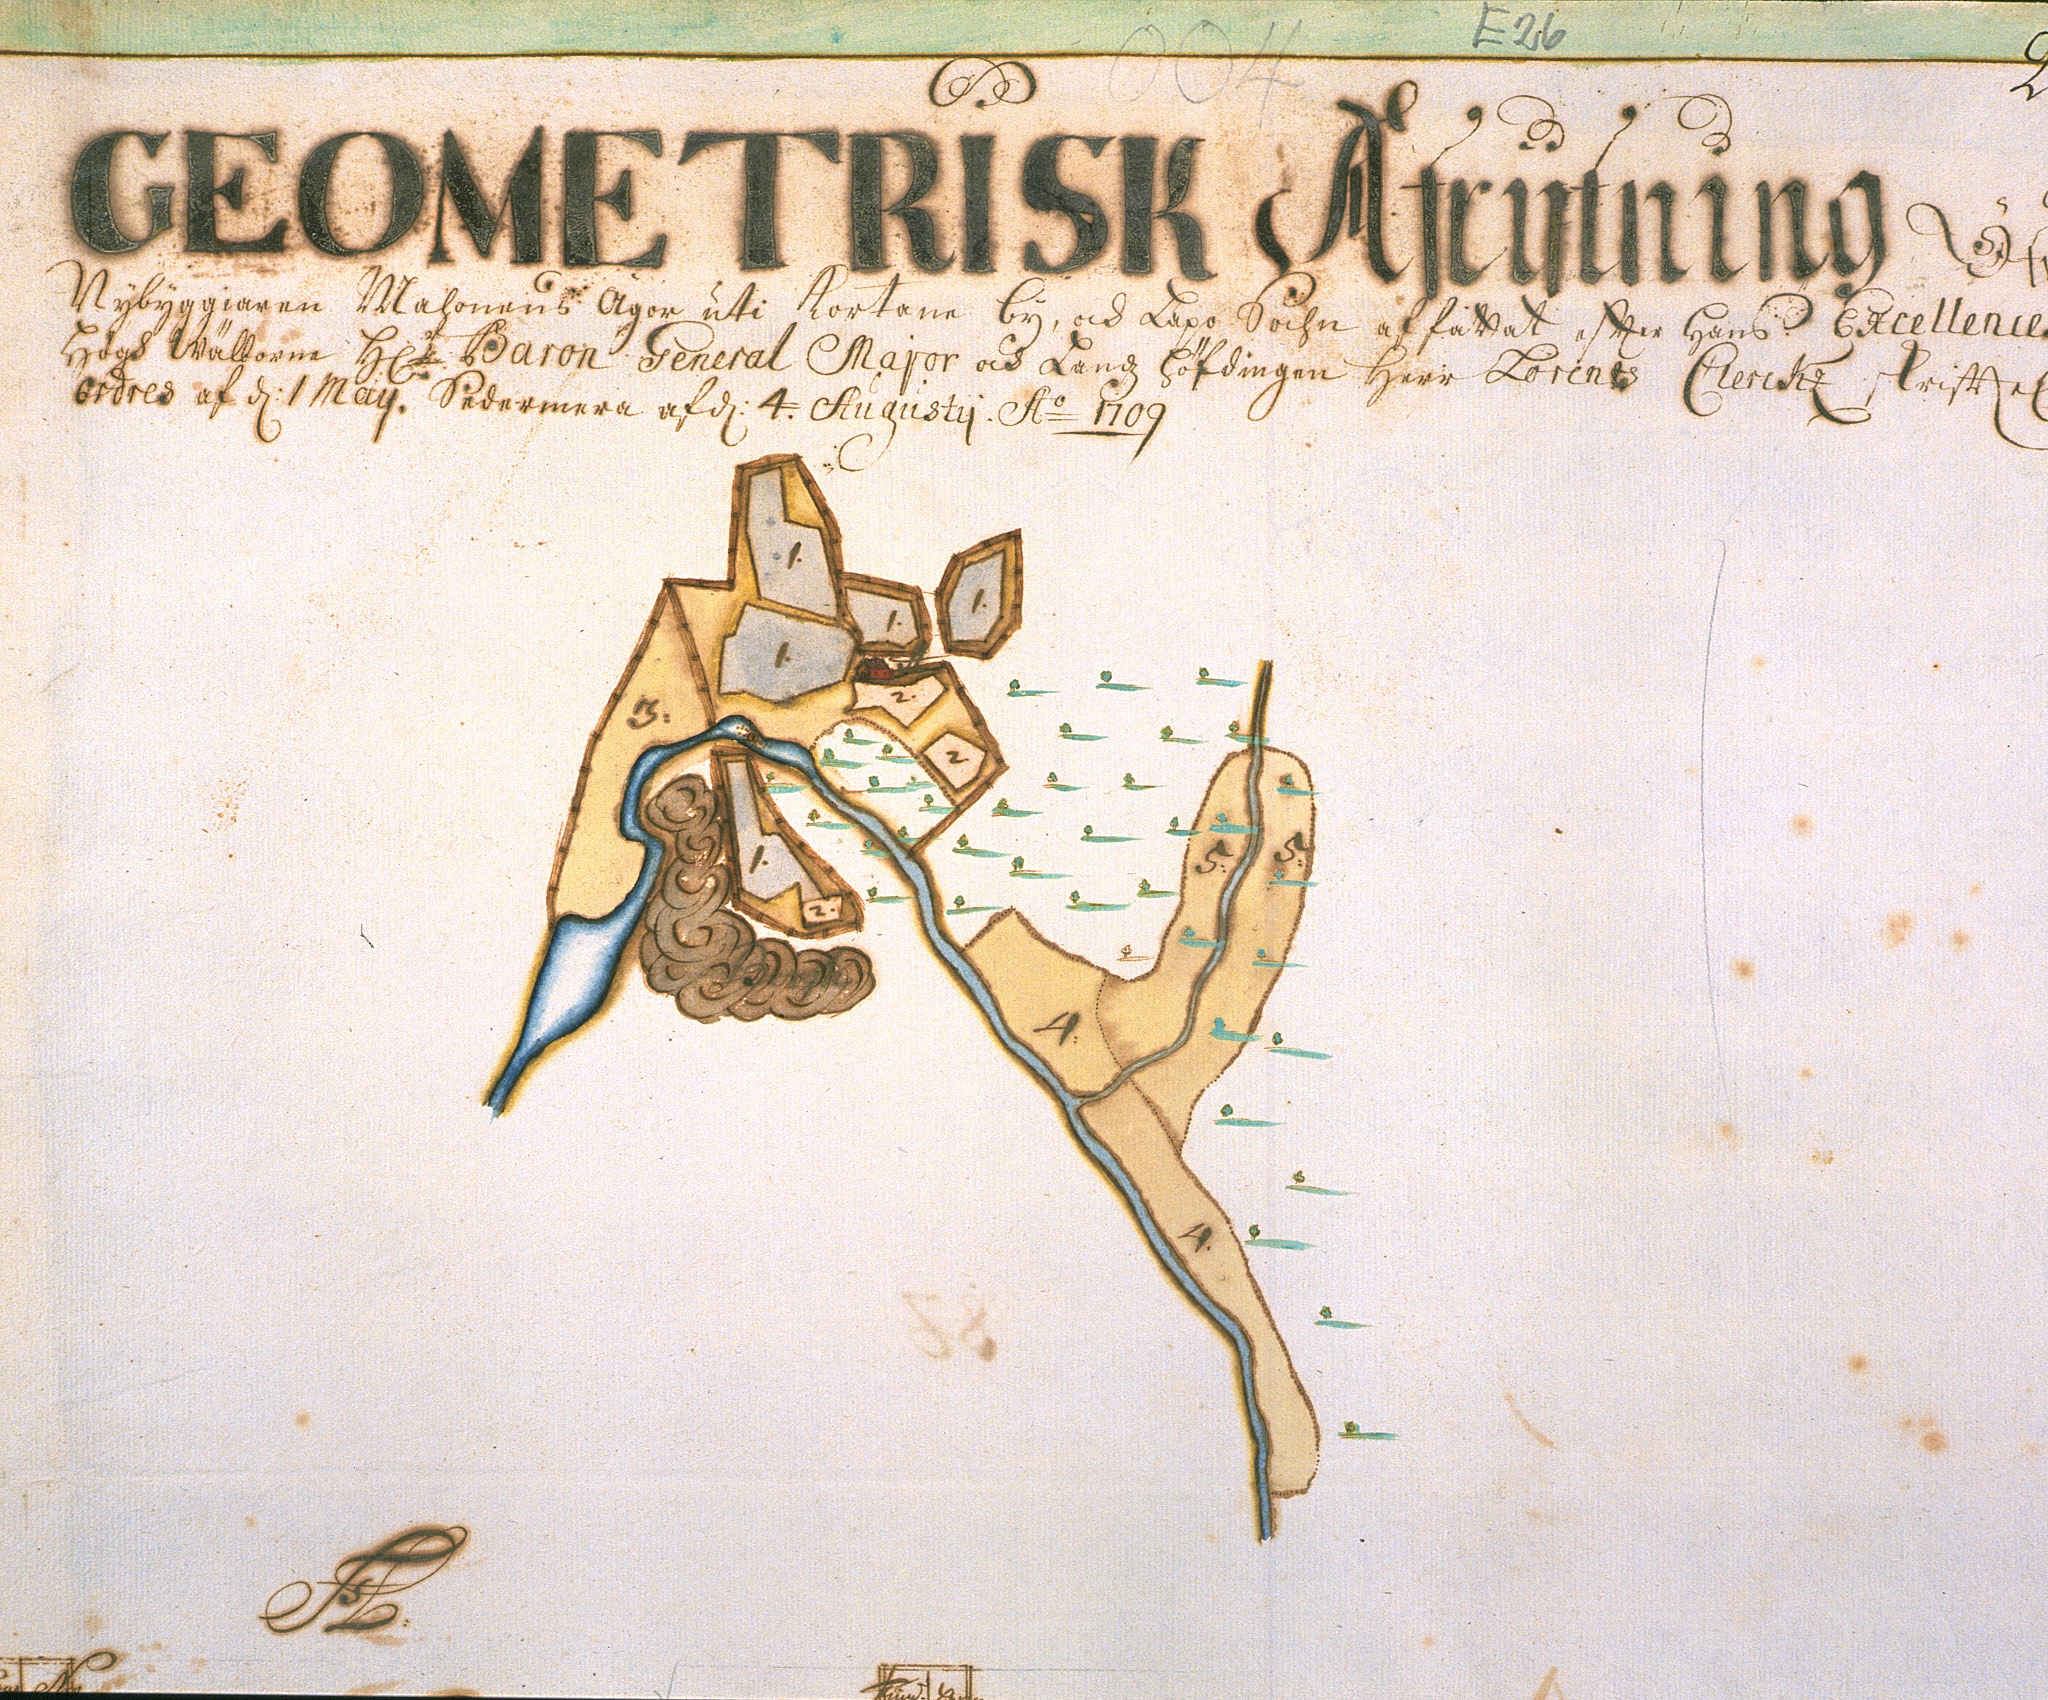 E26
004
2
GEOMETRISK Afrijtning
Nybyggiaren Mahoneus Ägor uti Kortane by, och Lapo Sochn affattat effter Hans Excellence
Högd Wälborne H Baron General Major och Landz höfdingen Herr Lorentz Clerckz
Ordres af d: 1 May. Sedermera af d: 4. Augustij. Ao 1709
1.
1.
1.
1.
2.
3:
2
1.
2.
5:
5:
4:
4.